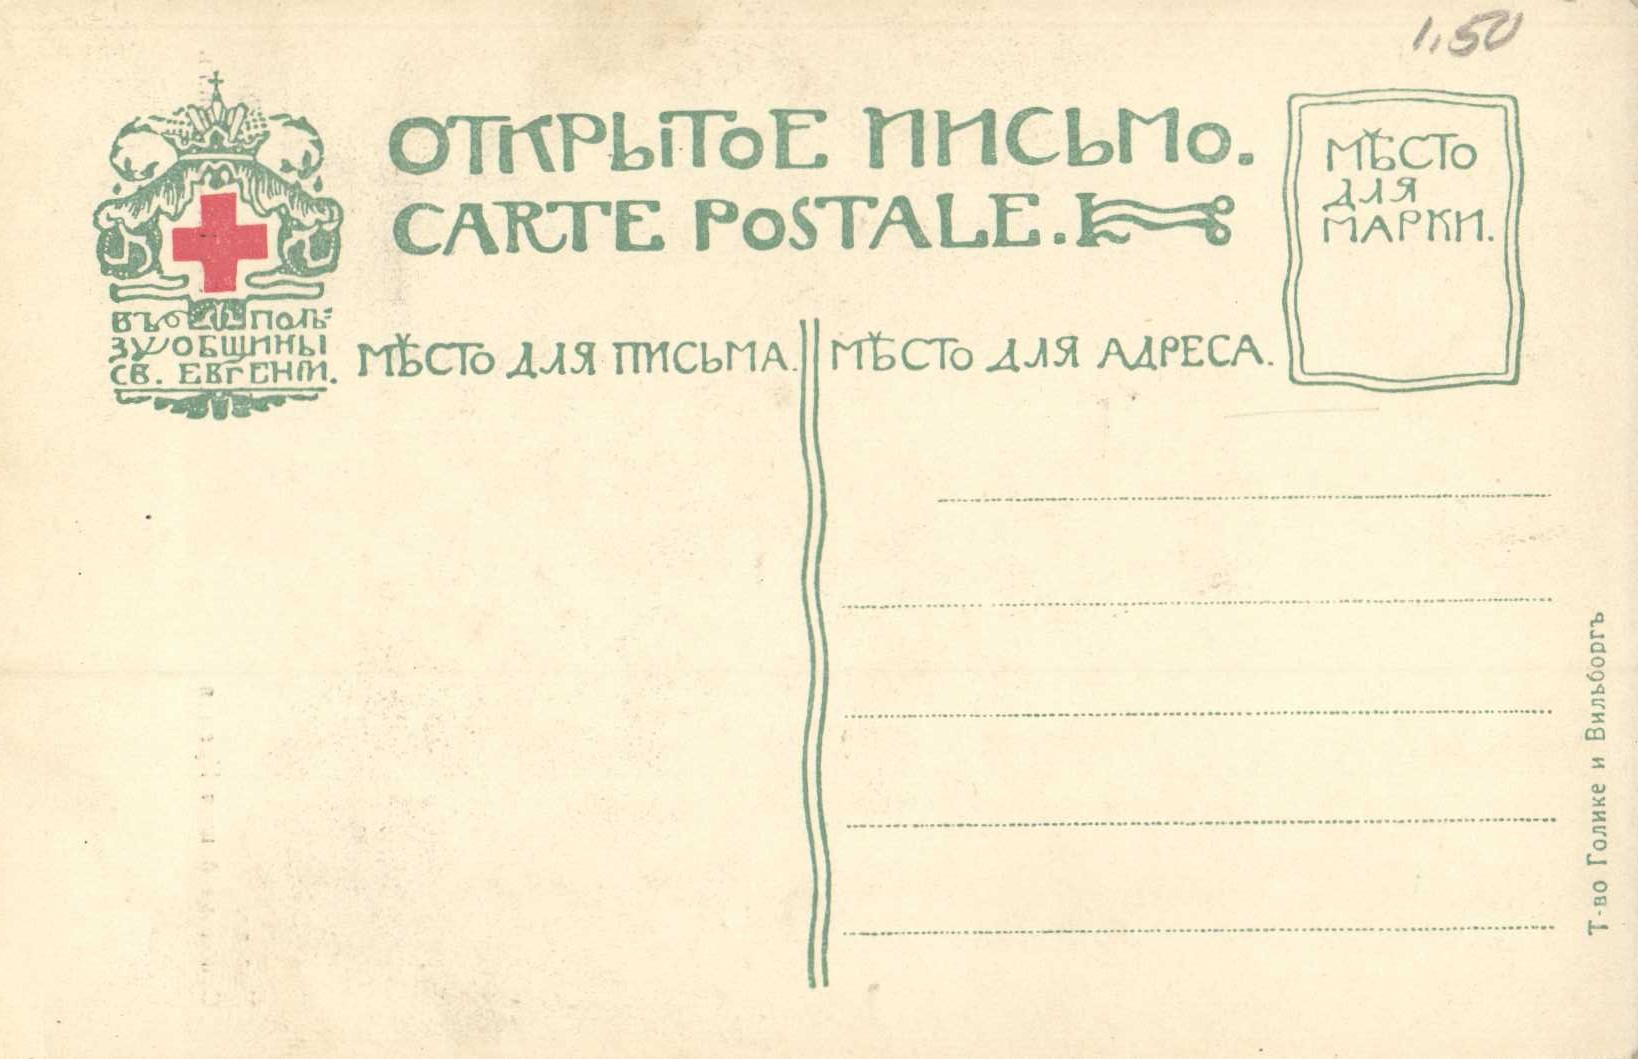 1,50
ОТКРЫТОЕ ПИСЬМО.
CARTE POSTALE.
МѢСТО
ДЛЯ
МАРКИ.
ВЪ ПОЛЬ-
ЗУ ОБЩИНЫ
СВ. ЕВГЕНІИ.
МѢСТО ДЛЯ ПИСЬМА.
МѢСТО ДЛЯ АДРЕСА.
Т-во Голике и Вильборгъ